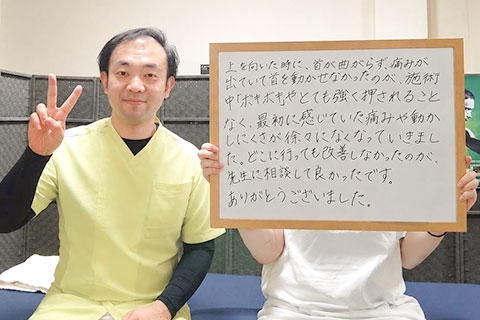 上を向いた時に、首が曲がらず、痛みが
出ていて首を動かせなかったのが、施術
中「ボキボキ」やとても強く押されること
なく、最初に感じていた痛みや動か
しにくさが徐々になくなっていきまし
た。どこに行っても改善しなかったのが、
先生に相談して良かったです。
ありがとうございました。